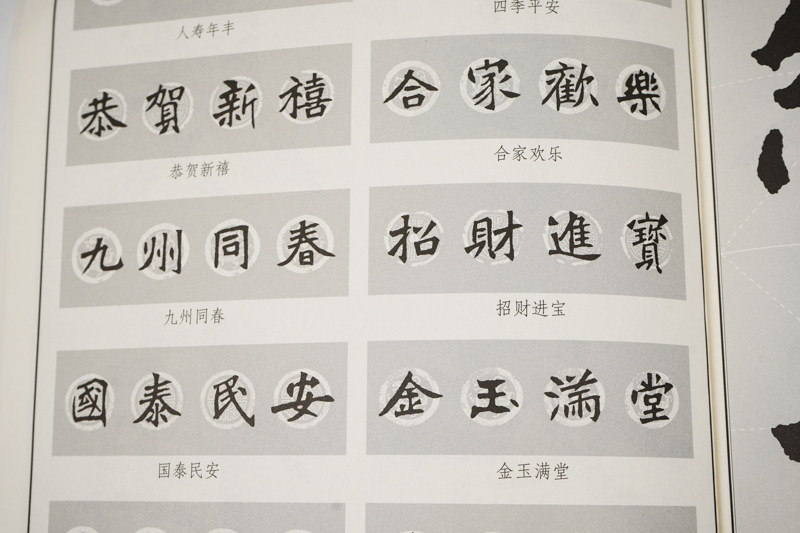 人寿年丰
四季平安
恭賀新禧
恭贺新禧
合家歡樂
合家欢乐
九州同春
九州同春
招財進寶
招财进宝
國泰民安
国泰民安
金玉滿堂
金玉满堂